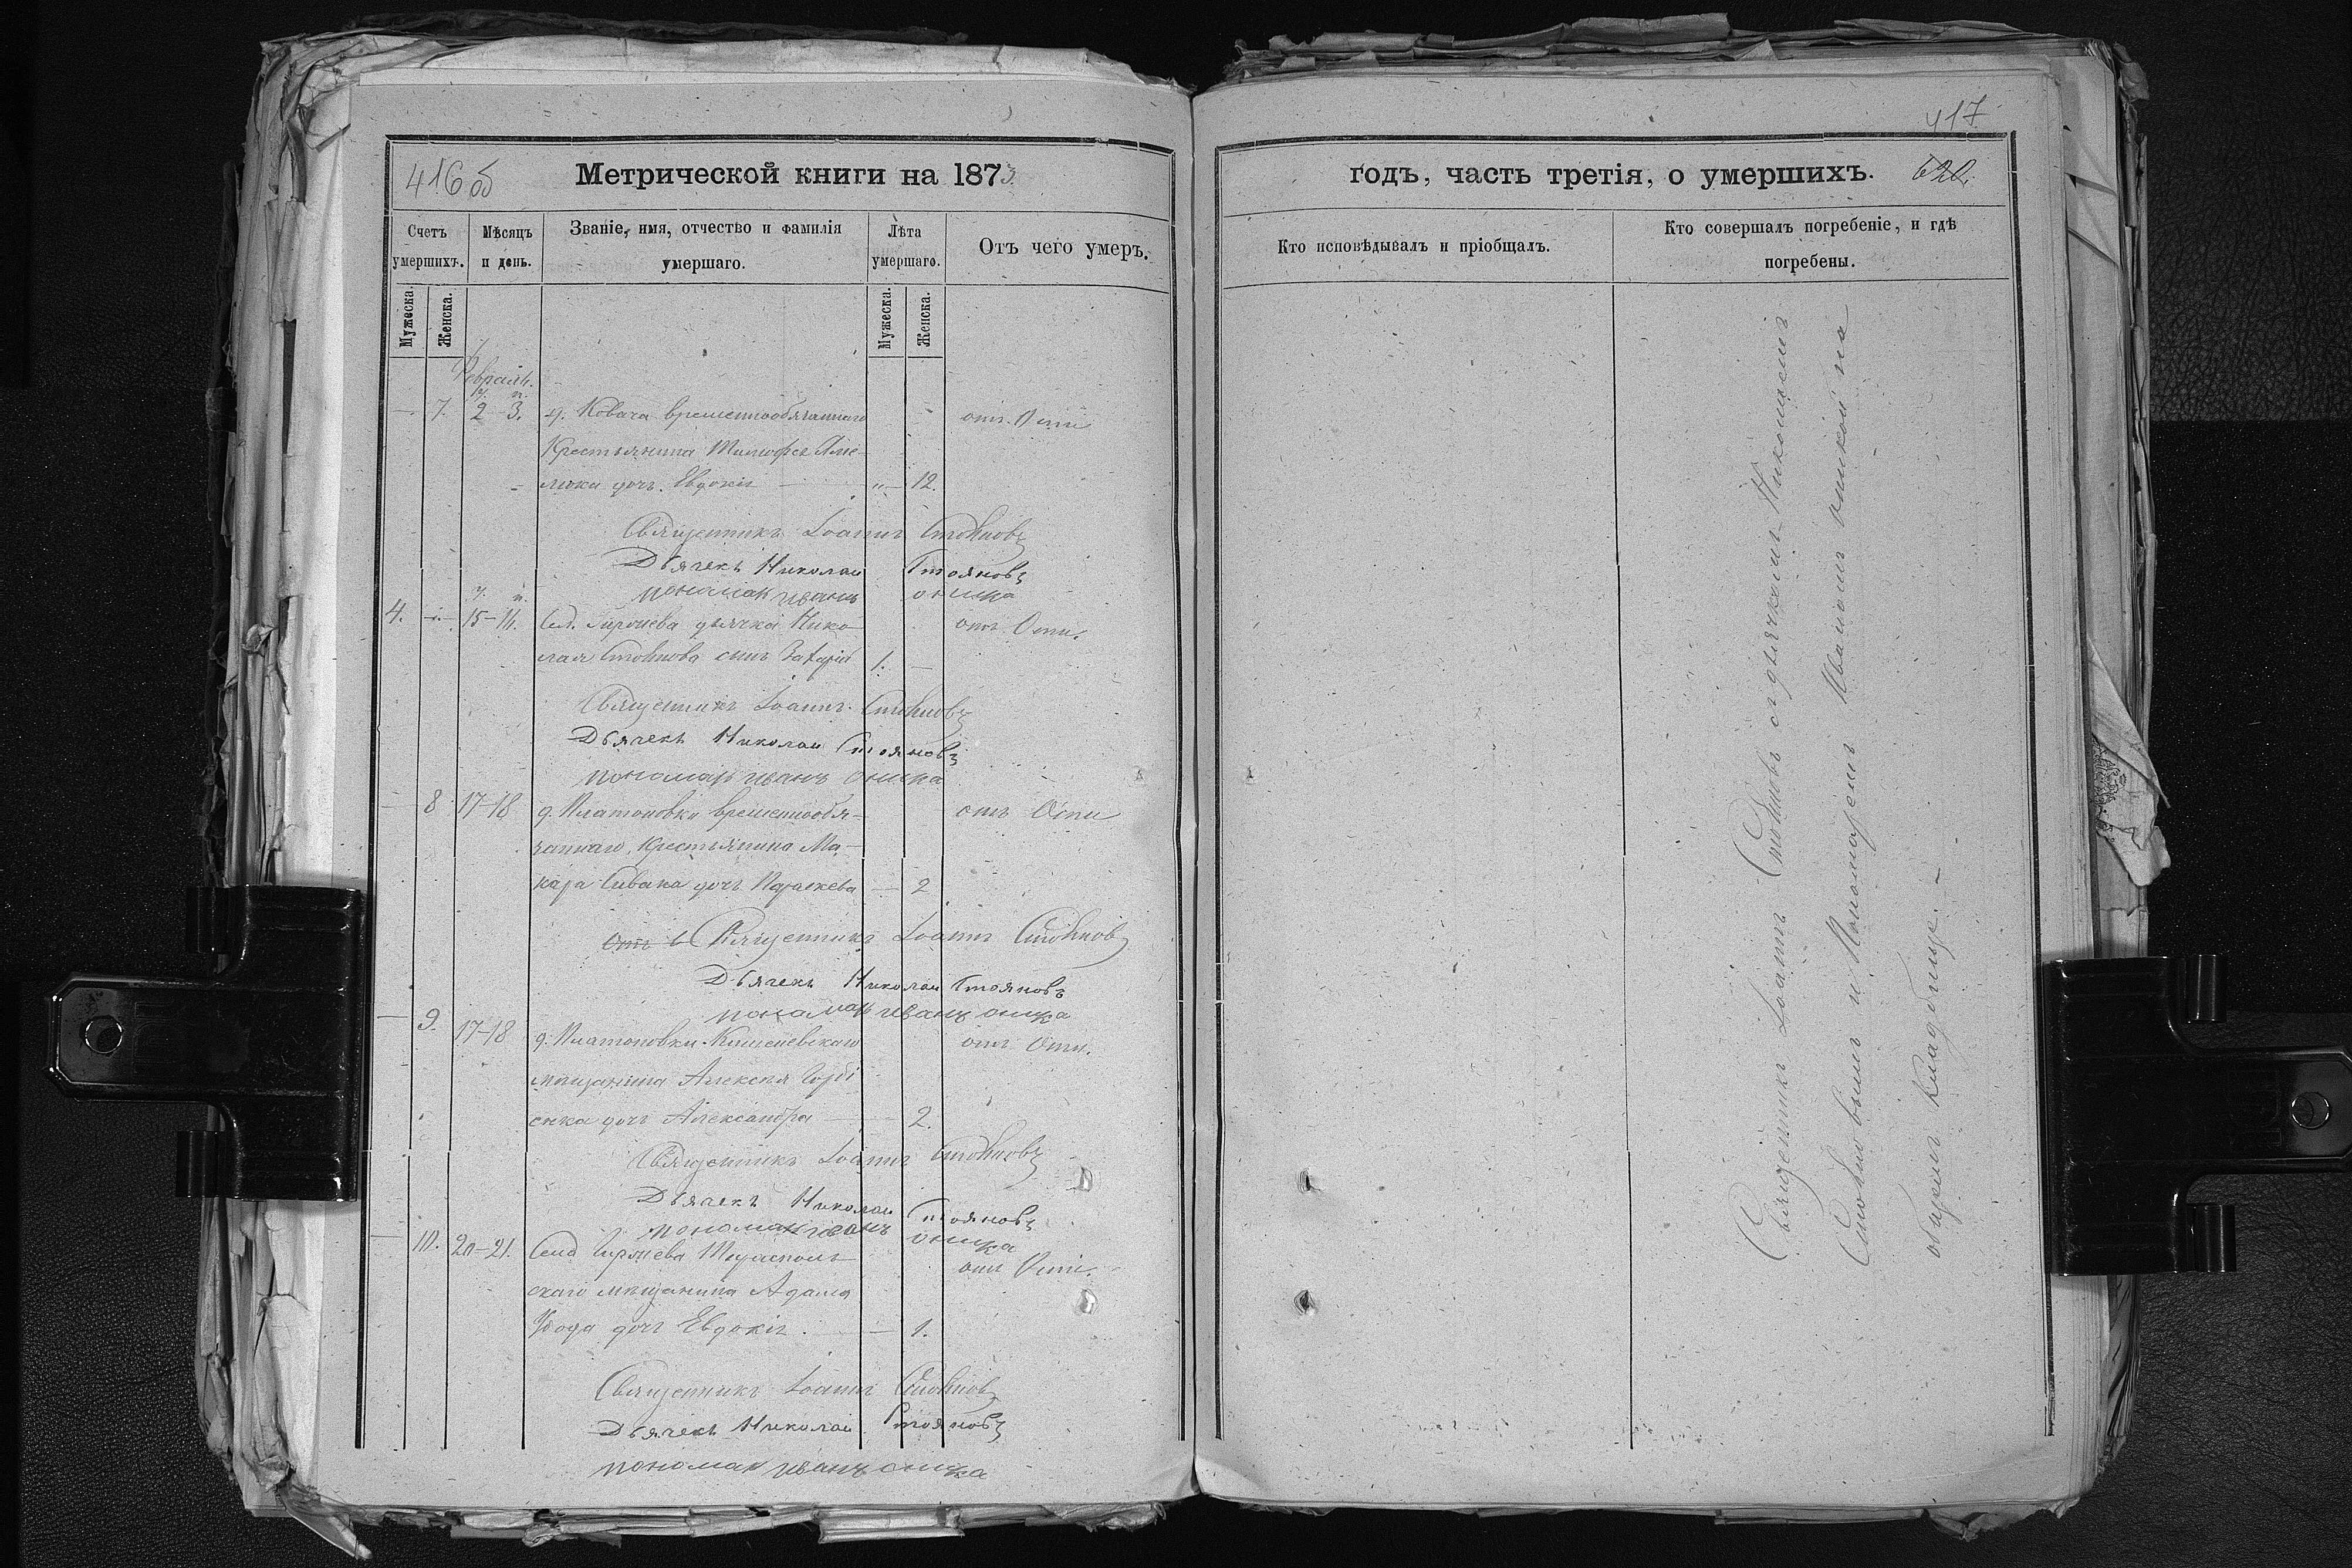 416 об
Метрической книги на 1873
Счетъ умершихъ.
Мѣсяцъ и день.
Званіе, имя, отчество и фамилія умершаго.
Лѣта умершаго.
Отъ чего умеръ.
Мужеска. Женска.
Мужеска. Женска.
Февраль.
у. п.
— 7. 2–3. д. Ковача временнообязаннаго отъ Оспи
Крестьянина Тимофея
дочь Евдокія — „ — 12.
Священникъ Іоаннъ Стояновъ
Дьячекъ Николай Стояновъ
пономарь иванъ оника
у. п.
4. — 15–16. Сел. дьячка Нико- отъ Оспи.
лая Стоянова сынъ Захарій 1. —
Священникъ Іоаннъ Стояновъ
Дьячекъ Николай Стояновъ
пономарь иванъ оника
— 8 17–18 д. Платоновки временнообя- отъ Оспи
заннаго Крестьянина Ма-
кара Сивака дочь Параскева — 2
Священникъ Іоаннъ Стояновъ
Дьячекъ Николай Стояновъ
пономарь иванъ оника
— 9. 17–18 д. Платоновки Кишеневскаго отъ Оспи.
мещанина Алексея
дочь Александра — 2.
Священникъ Іоаннъ Стояновъ
Дьячекъ Николай Стояновъ
пономарь иванъ оника
— 10. 20–21. Села Тирасполь- отъ Оспи.
скаго мѣщанина Адама
дочь Евдокія. — 1.
Священникъ Іоаннъ Стояновъ
Дьячекъ Николай Стояновъ
пономарь иванъ оника
417
годъ, часть третія, о умершихъ. 620.
Кто исповѣдывалъ и пріобщалъ.
Кто совершалъ погребеніе, и гдѣ погребены.
Священникъ Іоаннъ Стояновъ съ дьячкомъ Николаемъ
Стояновымъ и Пономаремъ Иваномъ оникой на
общемъ Кладбище. —